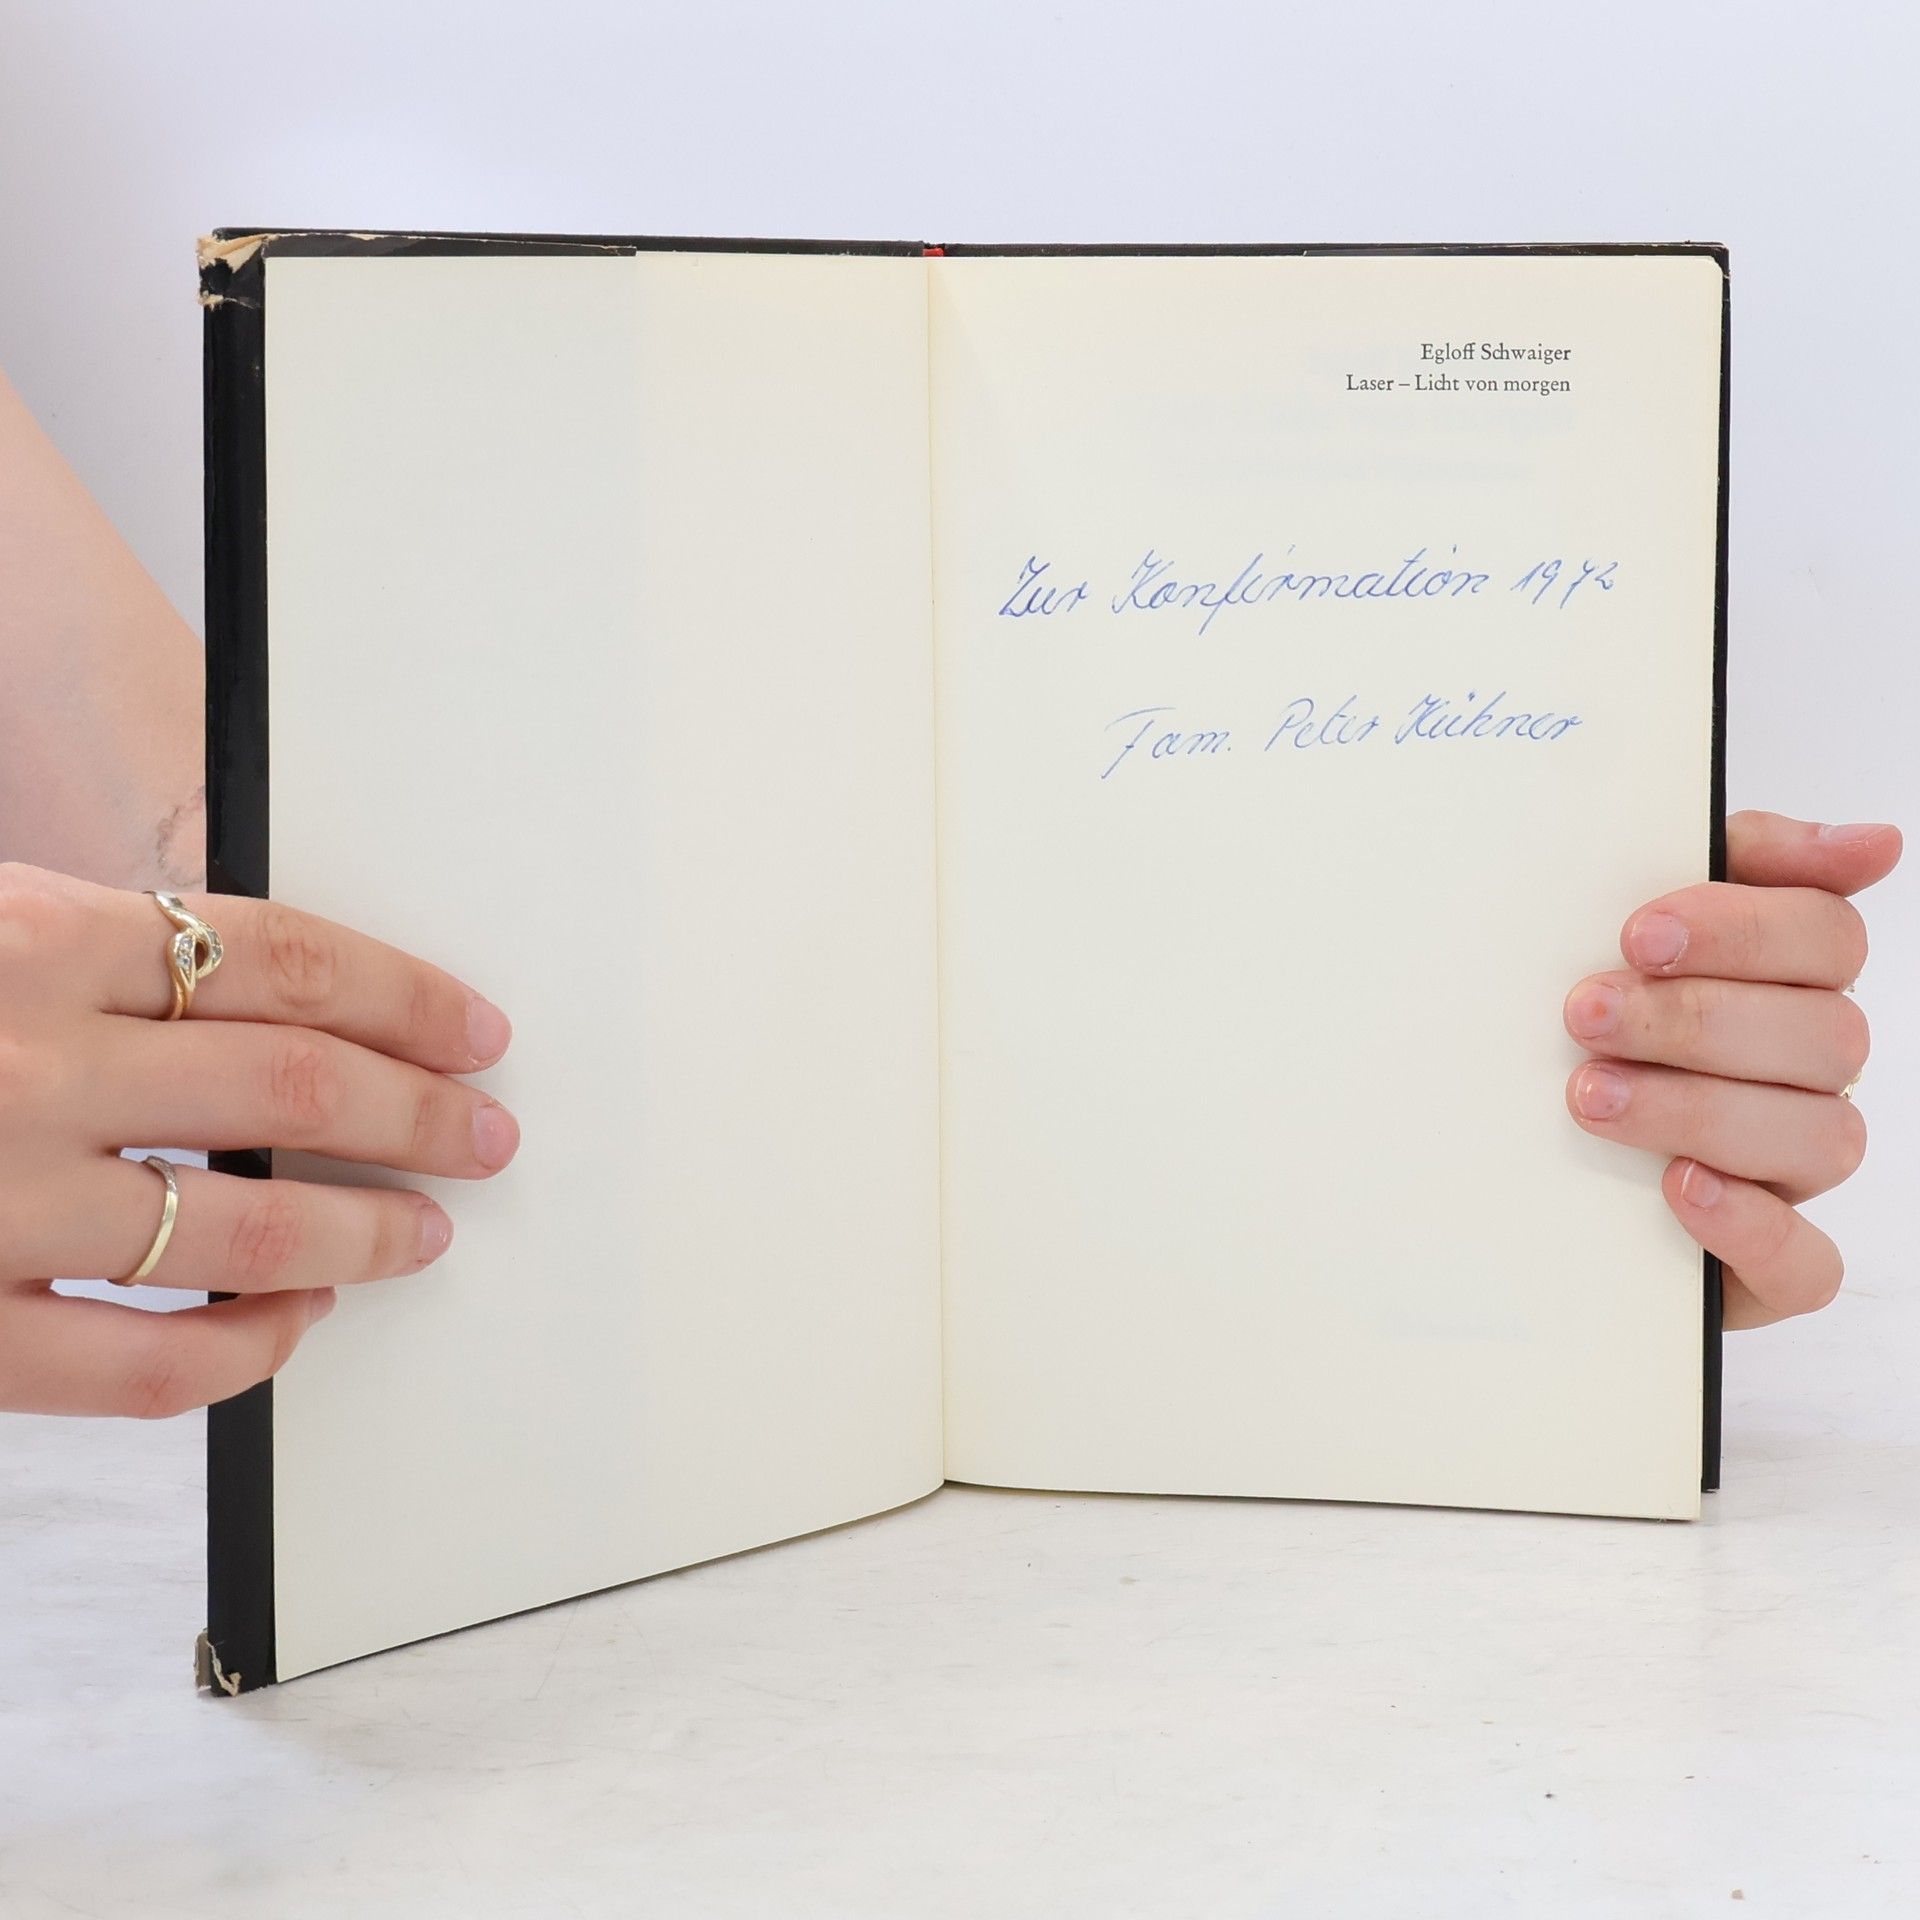 Egloff Schwaiger
Laser – Licht von morgen
Zur Konfirmation 1972
Fam. Peter Kühner